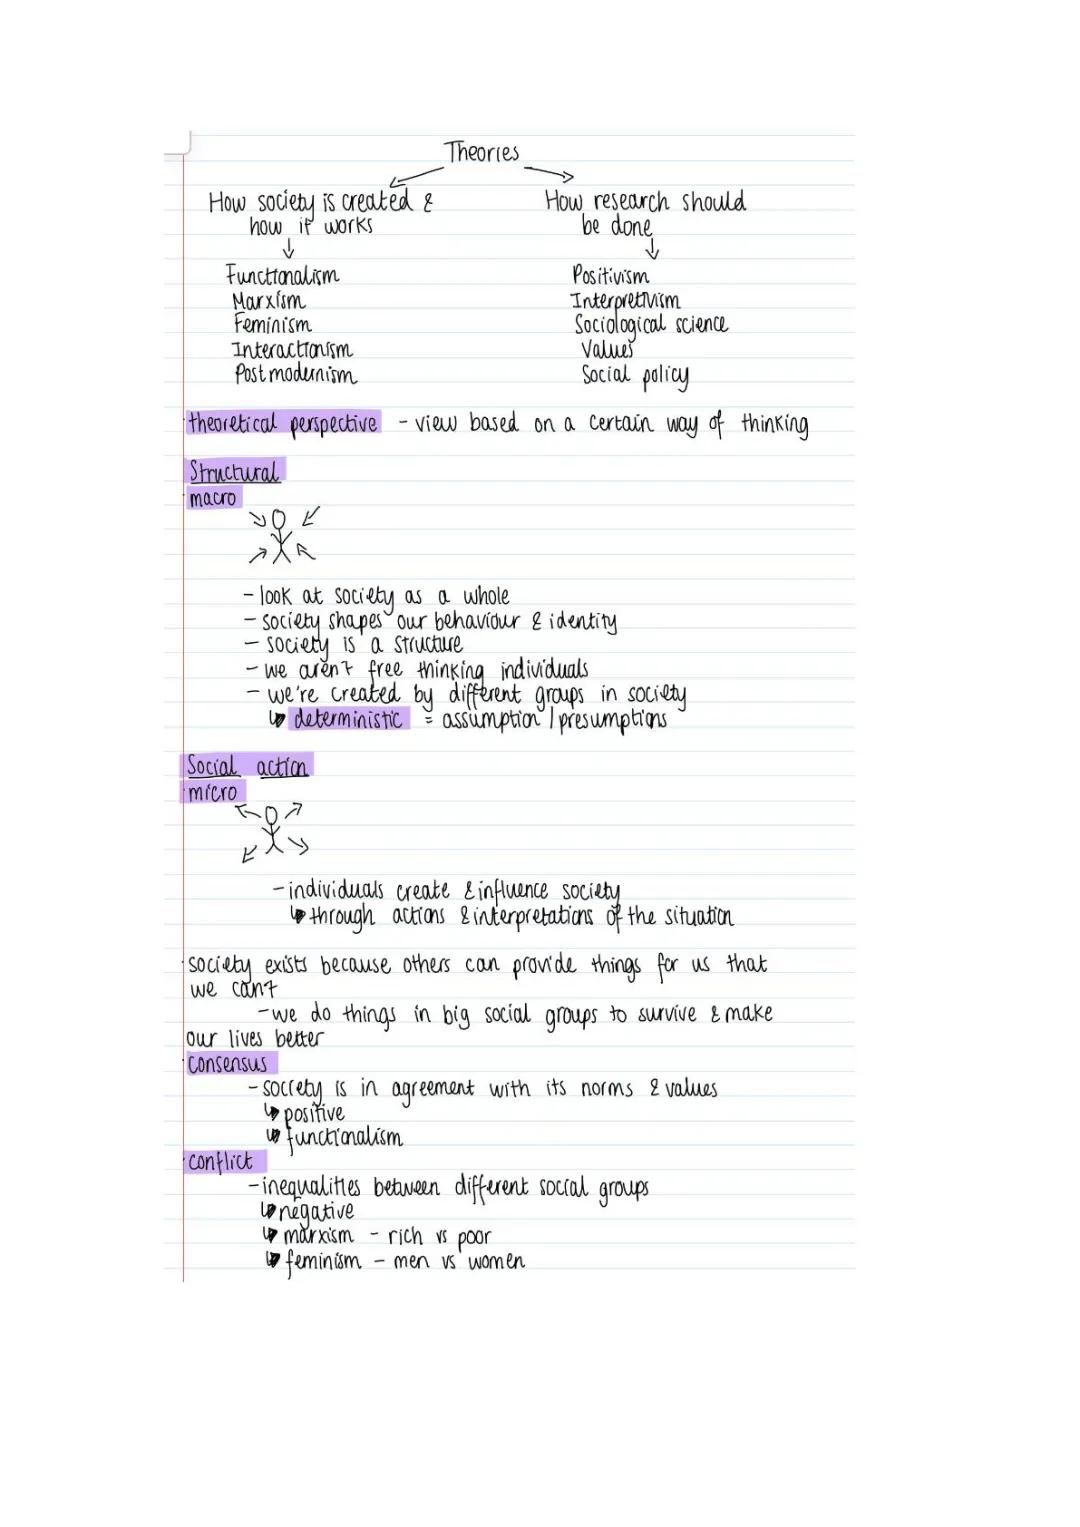 Theories
How society is created & How research should
how it works be done
Functionalism Positivism
Marxism Interpretivism
Feminism Sociological science
Interactionism Values
Postmodernism Social policy
theoretical perspective - view based on a certain way of thinking
Structural
macro
- look at society as a whole
- society shapes our behaviour & identity
- society is a structure
- we aren't free thinking individuals
- we're created by different groups in society
↳ deterministic = assumption / presumptions
Social action
micro
- individuals create & influence society
↳ through actions & interpretations of the situation
society exists because others can provide things for us that
we can't
- we do things in big social groups to survive & make
our lives better
consensus
- society is in agreement with its norms & values
↳ positive
↳ functionalism
conflict
- inequalities between different social groups
↳ negative
↳ marxism - rich vs poor
↳ feminism - men vs women